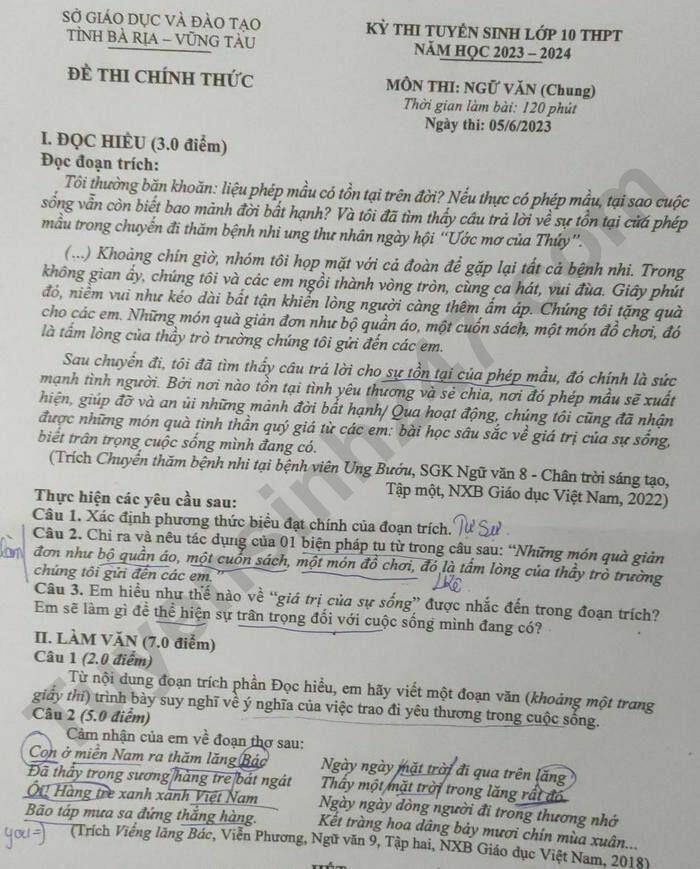 SỞ GIÁO DỤC VÀ ĐÀO TẠO
TỈNH BÀ RỊA – VŨNG TÀU
ĐỀ THI CHÍNH THỨC
KỲ THI TUYỂN SINH LỚP 10 THPT
NĂM HỌC 2023 – 2024
MÔN THI: NGỮ VĂN (Chung)
Thời gian làm bài: 120 phút
Ngày thi: 05/6/2023
I. ĐỌC HIỂU (3.0 điểm)
Đọc đoạn trích:
Tôi thường băn khoăn: liệu phép mầu có tồn tại trên đời? Nếu thực có phép mầu, tại sao cuộc
sống vẫn còn biết bao mảnh đời bất hạnh? Và tôi đã tìm thấy câu trả lời về sự tồn tại của phép
mầu trong chuyến đi thăm bệnh nhi ung thư nhân ngày hội “Ước mơ của Thúy”.
(...) Khoảng chín giờ, nhóm tôi họp mặt với cả đoàn để gặp lại tất cả bệnh nhi. Trong
không gian ấy, chúng tôi và các em ngồi thành vòng tròn, cùng ca hát, vui đùa. Giây phút
đó, niềm vui như kéo dài bất tận khiến lòng người càng thêm ấm áp. Chúng tôi tặng quà
cho các em. Những món quà giản đơn như bộ quần áo, một cuốn sách, một món đồ chơi, đó
là tấm lòng của thầy trò trường chúng tôi gửi đến các em.
Sau chuyến đi, tôi đã tìm thấy câu trả lời cho sự tồn tại của phép mầu, đó chính là sức
mạnh tình người. Bởi nơi nào tồn tại tình yêu thương và sẻ chia, nơi đó phép mầu sẽ xuất
hiện, giúp đỡ và an ủi những mảnh đời bất hạnh/ Qua hoạt động, chúng tôi cũng đã nhận
được những món quà tinh thần quý giá từ các em: bài học sâu sắc về giá trị của sự sống,
biết trân trọng cuộc sống mình đang có.
(Trích Chuyến thăm bệnh nhi tại bệnh viện Ung Bướu, SGK Ngữ văn 8 - Chân trời sáng tạo,
Tập một, NXB Giáo dục Việt Nam, 2022)
Thực hiện các yêu cầu sau:
Câu 1. Xác định phương thức biểu đạt chính của đoạn trích. Tự sự
Câu 2. Chỉ ra và nêu tác dụng của 01 biện pháp tu từ trong câu sau: “Những món quà giản
đơn như bộ quần áo, một cuốn sách, một món đồ chơi, đó là tấm lòng của thầy trò trường
chúng tôi gửi đến các em.” LKê
làm
Câu 3. Em hiểu như thế nào về “giá trị của sự sống” được nhắc đến trong đoạn trích?
Em sẽ làm gì để thể hiện sự trân trọng đối với cuộc sống mình đang có?
II. LÀM VĂN (7.0 điểm)
Câu 1 (2.0 điểm)
Từ nội dung đoạn trích phần Đọc hiểu, em hãy viết một đoạn văn (khoảng một trang
giấy thi) trình bày suy nghĩ về ý nghĩa của việc trao đi yêu thương trong cuộc sống.
Câu 2 (5.0 điểm)
Cảm nhận của em về đoạn thơ sau:
Con ở miền Nam ra thăm lăng Bác
Đã thấy trong sương hàng tre bát ngát
Ôi! Hàng tre xanh xanh Việt Nam
Bão táp mưa sa đứng thẳng hàng.
Ngày ngày mặt trời đi qua trên lăng
Thấy một mặt trời trong lăng rất đỏ
Ngày ngày dòng người đi trong thương nhớ
Kết tràng hoa dâng bảy mươi chín mùa xuân...
you =)
(Trích Viếng lăng Bác, Viễn Phương, Ngữ văn 9, Tập hai, NXB Giáo dục Việt Nam, 2018)
HẾT
Tuyensinh247.com